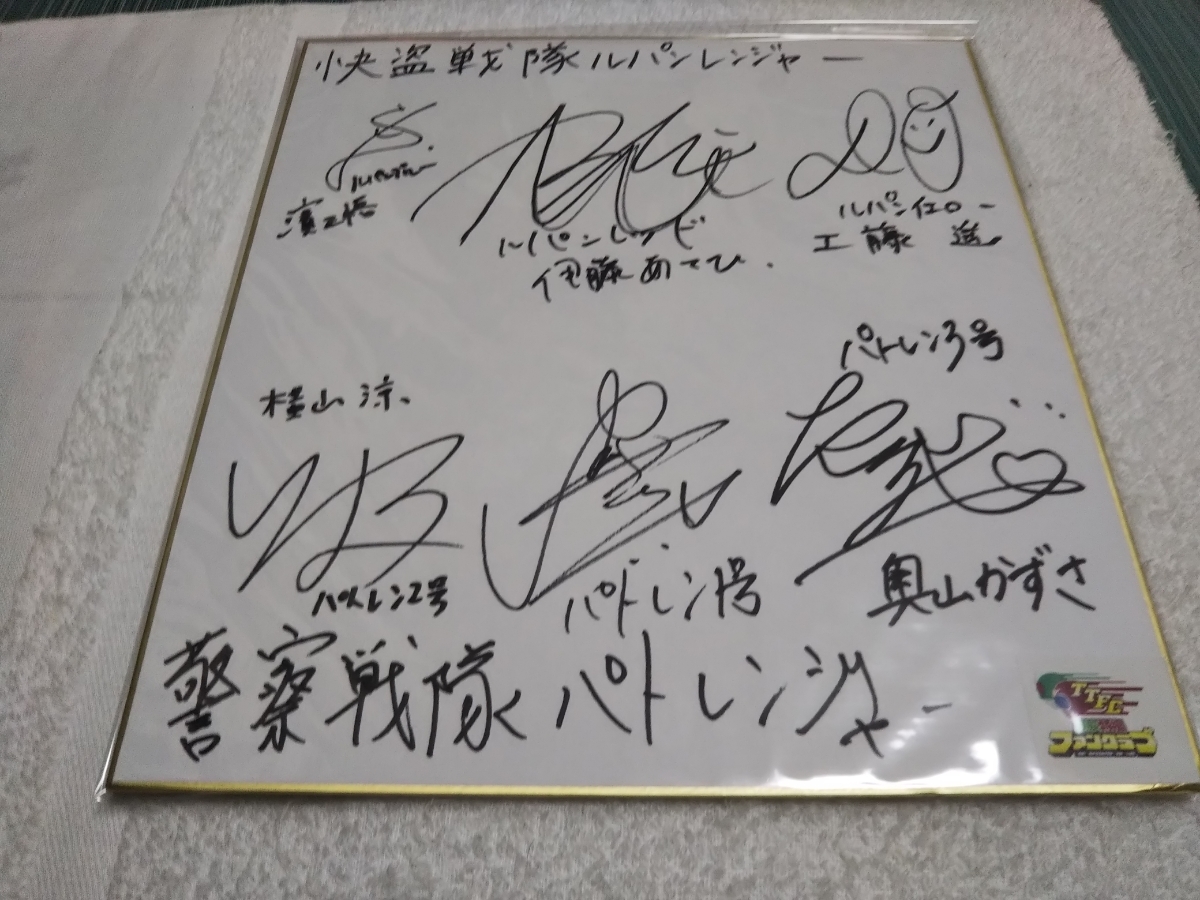 快盗戦隊ルパンレンジャー
濱正悟
ルパンレッド
伊藤あさひ.
ルパンイエロー
工藤遥
横山涼
パトレン2号
パトレン1号
パトレン3号
奥山かずさ
警察戦隊パトレンジャー
TTFC
ファンクラブ